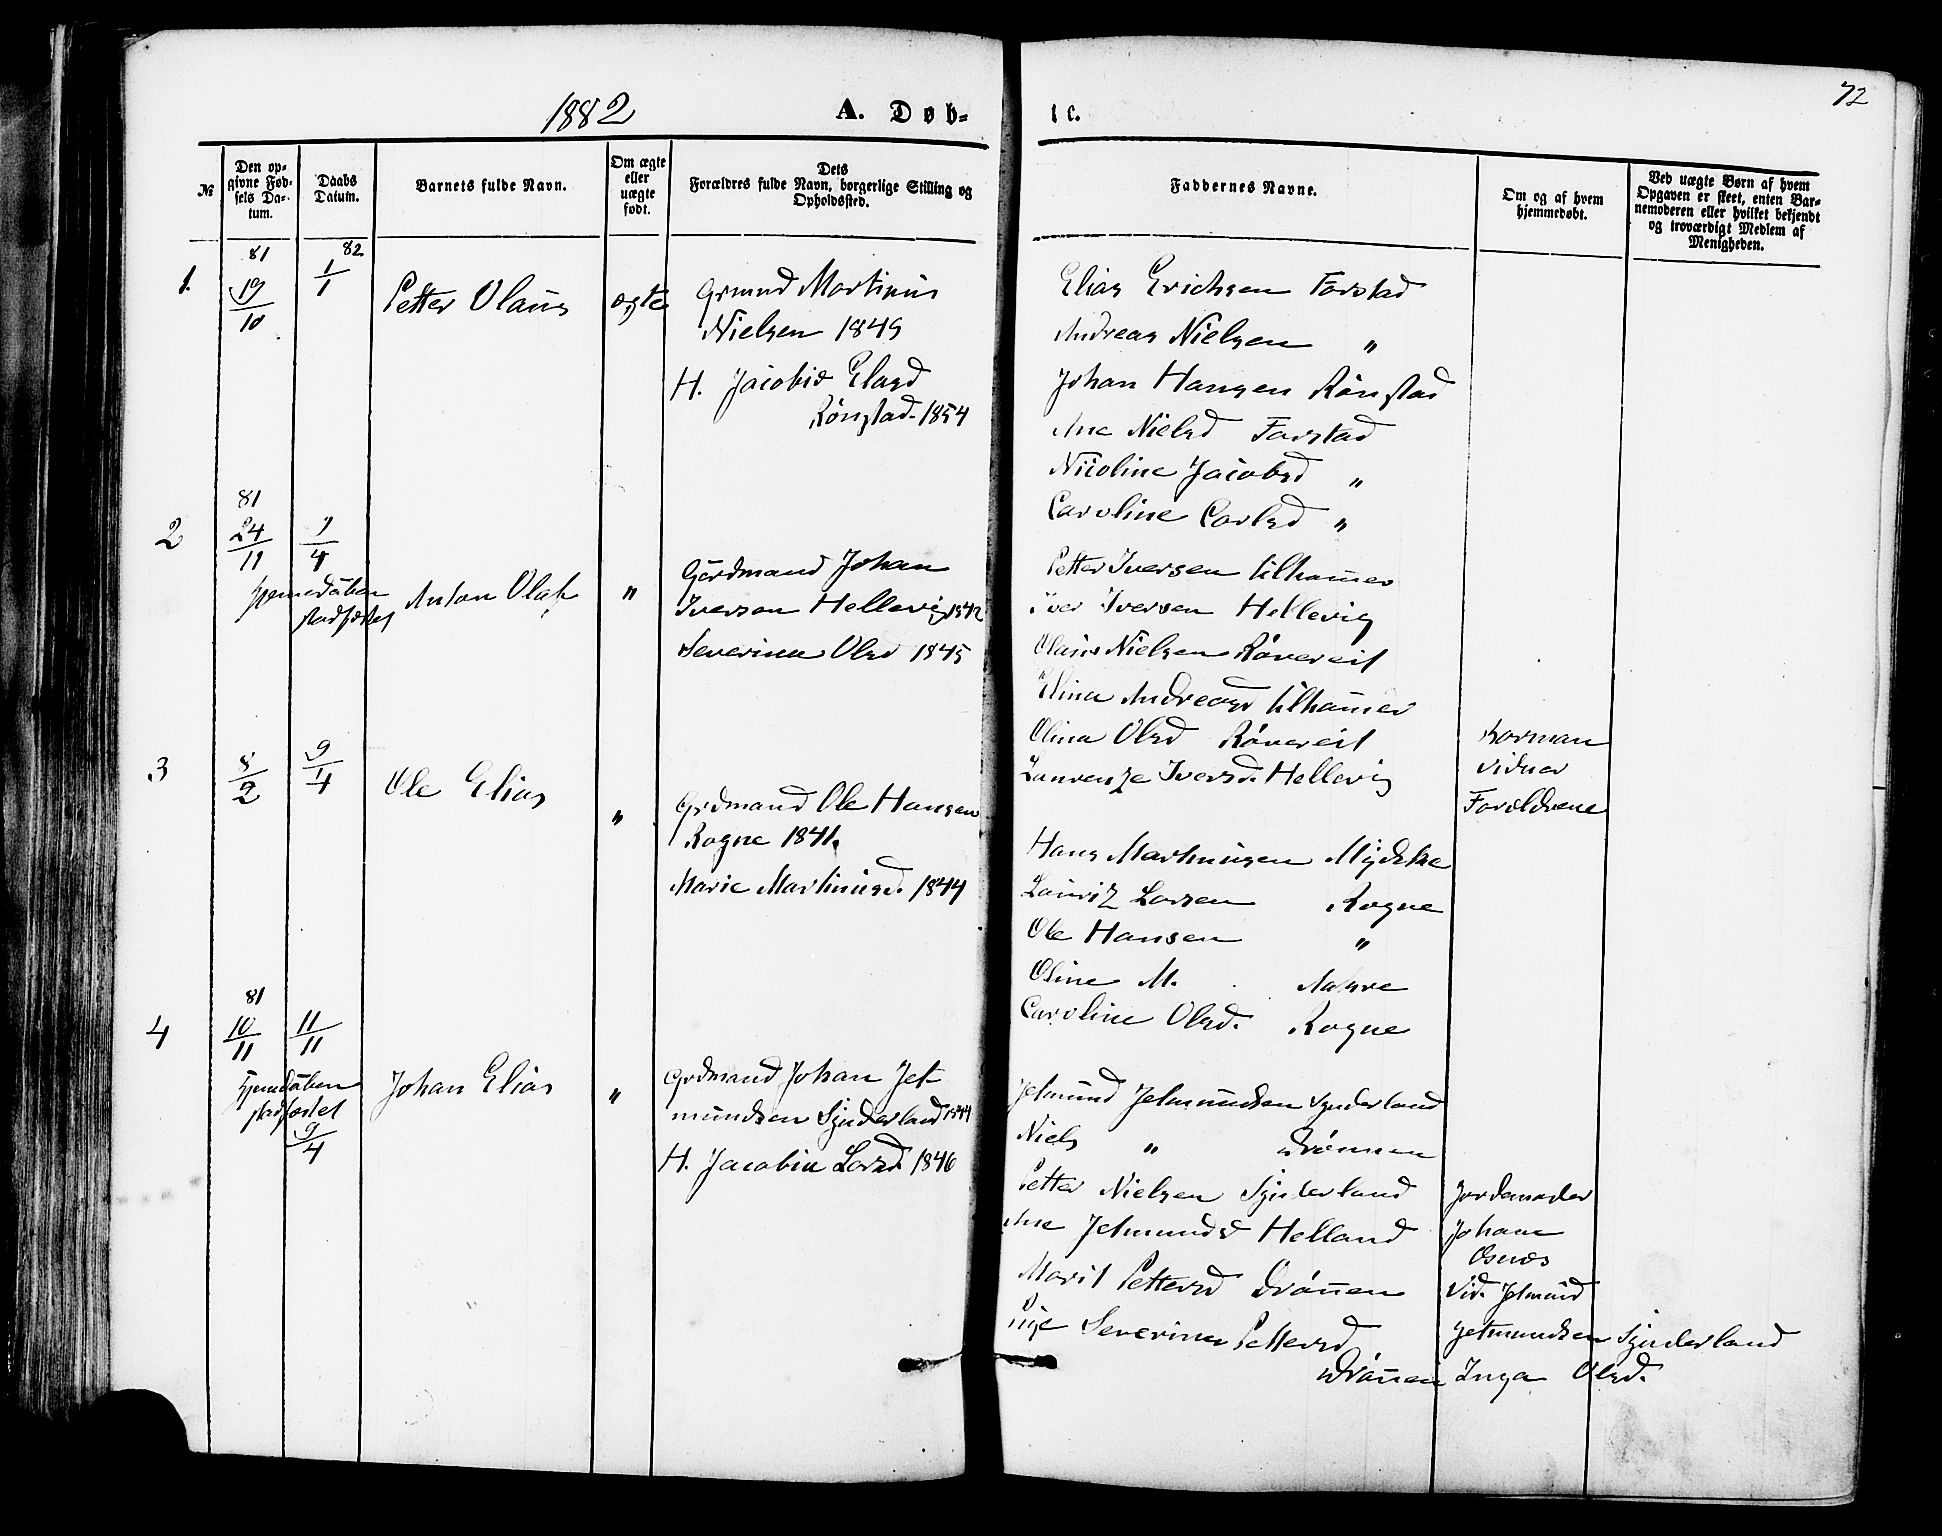 1882
A. Døb-
te.
72
№
Den op-
givne Fød-
sels Da-
tum.
Daabs
Datum.
Barnets fulde Navn.
Om ægte
eller
uægte
født.
Dets
Forældres fulde Navn, borgerlige Stilling og
Opholdssted.
Faddernes Navne.
Om og af hvem
hjemmedøbt.
Ved uægte Børn af hvem
Opgaven er skeet, enten Bar-
nemoderen eller hvilket bekjendt
og troværdigt Medlem af
Menigheden.
1.
81
19/10
82
1/1
Petter Olaus
ægte
Grmnd Martinus
Nielsen 1849
H. Jacobie Elasd
Rønstad. 1854
Elias Erichsen Farstad
Andreas Nielsen "
Johan Hansen Rønstad
Ane Nielsd Farstad
Nicoline Jacobsd "
Caroline Carlsd "
2
81
24/11
9/4
Hjemmedøben
stadfæstet
Anton Olaf
"
Gårdmand Johan
Iversen Hellevig 1842
Severine Olsd 1845
Petter Iversen Lilhamer
Iver Iversen Hellevig
Olaus Nielsen Røvereit
Elina Andreasd Lilhamer
Olina Olsd Røvereit
Laurenze Iversd. Hellevig
vidner
Forældrene
3
8/2
9/4
Ole Elias
"
Grdmand Ole Hansen
Rogne 1841.
Marie Martinusd. 1844
Hans Martinusen
Lauritz Larsen Rogne
Ole Hansen "
Oline M.
Caroline Olsd. Rogne
4
81
10/11
11/11
Hjemedåben
stadfæstet
9/4
Johan Elias
"
Grdmand Johan Jet-
mundsen Synderland 1844
H. Jacobin Larsd. 1846
Jetmund Jetmundsen Synderland
Niels " Drønnen
Petter Nielsen Synderland
Ane Jetmundsd Helland
Marit Pettersd Drønnen
Pige Severine Pettersd
Drønnen
Jordemoder
Johane
Osnæs
Vid. Jetmund
Jetmundsen Synderland
Inga Olsd.